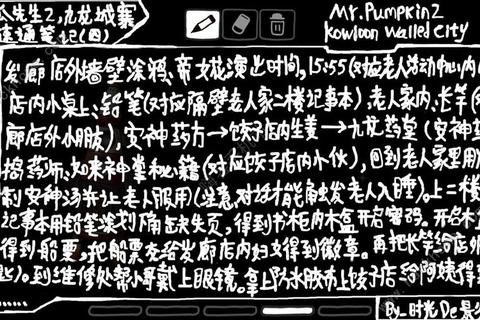 瓜先生2九龙城寨
速通笔记(四)
Mr.Pumpkin2
Kowloon Walled City
发廊店外墙壁涂鸦、帝女花演出时间,15:55(对应老人活动中心内
店内小桌上、铅笔(对应隔壁老人家二楼记事本)、老人家内、长竿(
廊店外小朋友),安神药方→饺子店内生姜→九龙药堂(安神药
捣药师、如来神掌秘籍(对应饺子店内小伙),回到老人家里用
制安神汤并让老人服用(注意,对话才能触发老人入睡)。上二楼
记事本用铅笔涂划痕在缺失页,得到书柜内木盒开启密码。开启木
得到船票。把船票交给发廊店内妇女得到徽章。再把长竿给店外
匙)。到维修处帮小哥戴上眼镜。拿上防水胶布上饺子店给阿姨得
By_时光De